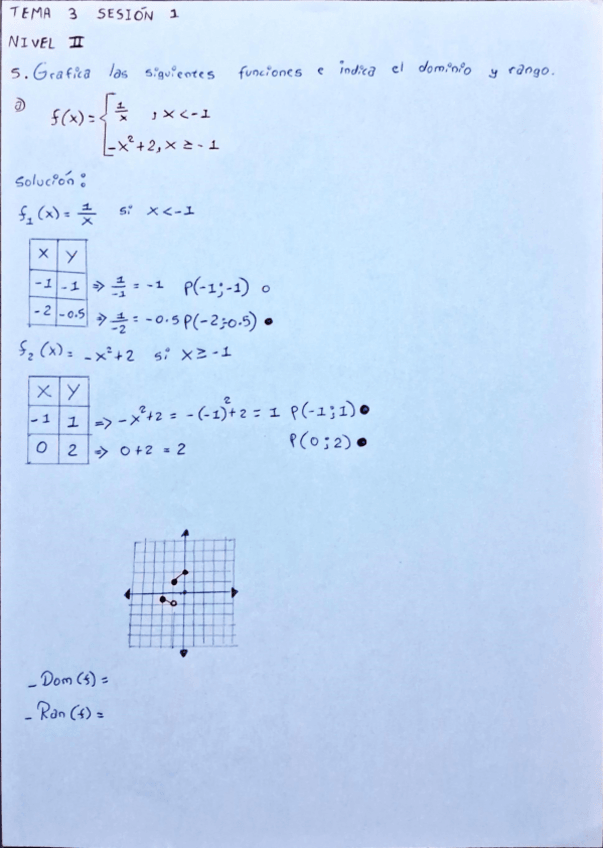 TEMA 3 SESIÓN 1
NIVEL II
5. Grafica las siguientes funciones e indica el dominio y rango.
a) f(x) = { 1/x , x < -1
-x²+2, x ≥ -1
Solución:
f₁(x) = 1/x si x < -1
X Y
-1 -1 ⇒ 1/-1 = -1 P(-1;-1) ○
-2 -0.5 ⇒ 1/-2 = -0.5 P(-2;-0.5) ●
f₂(x) = -x²+2 si x ≥ -1
X Y
-1 1 ⇒ -x²+2 = -(-1)²+2 = 1 P(-1;1) ●
0 2 ⇒ 0+2 = 2 P(0;2) ●
- Dom(f) =
- Ran(f) =